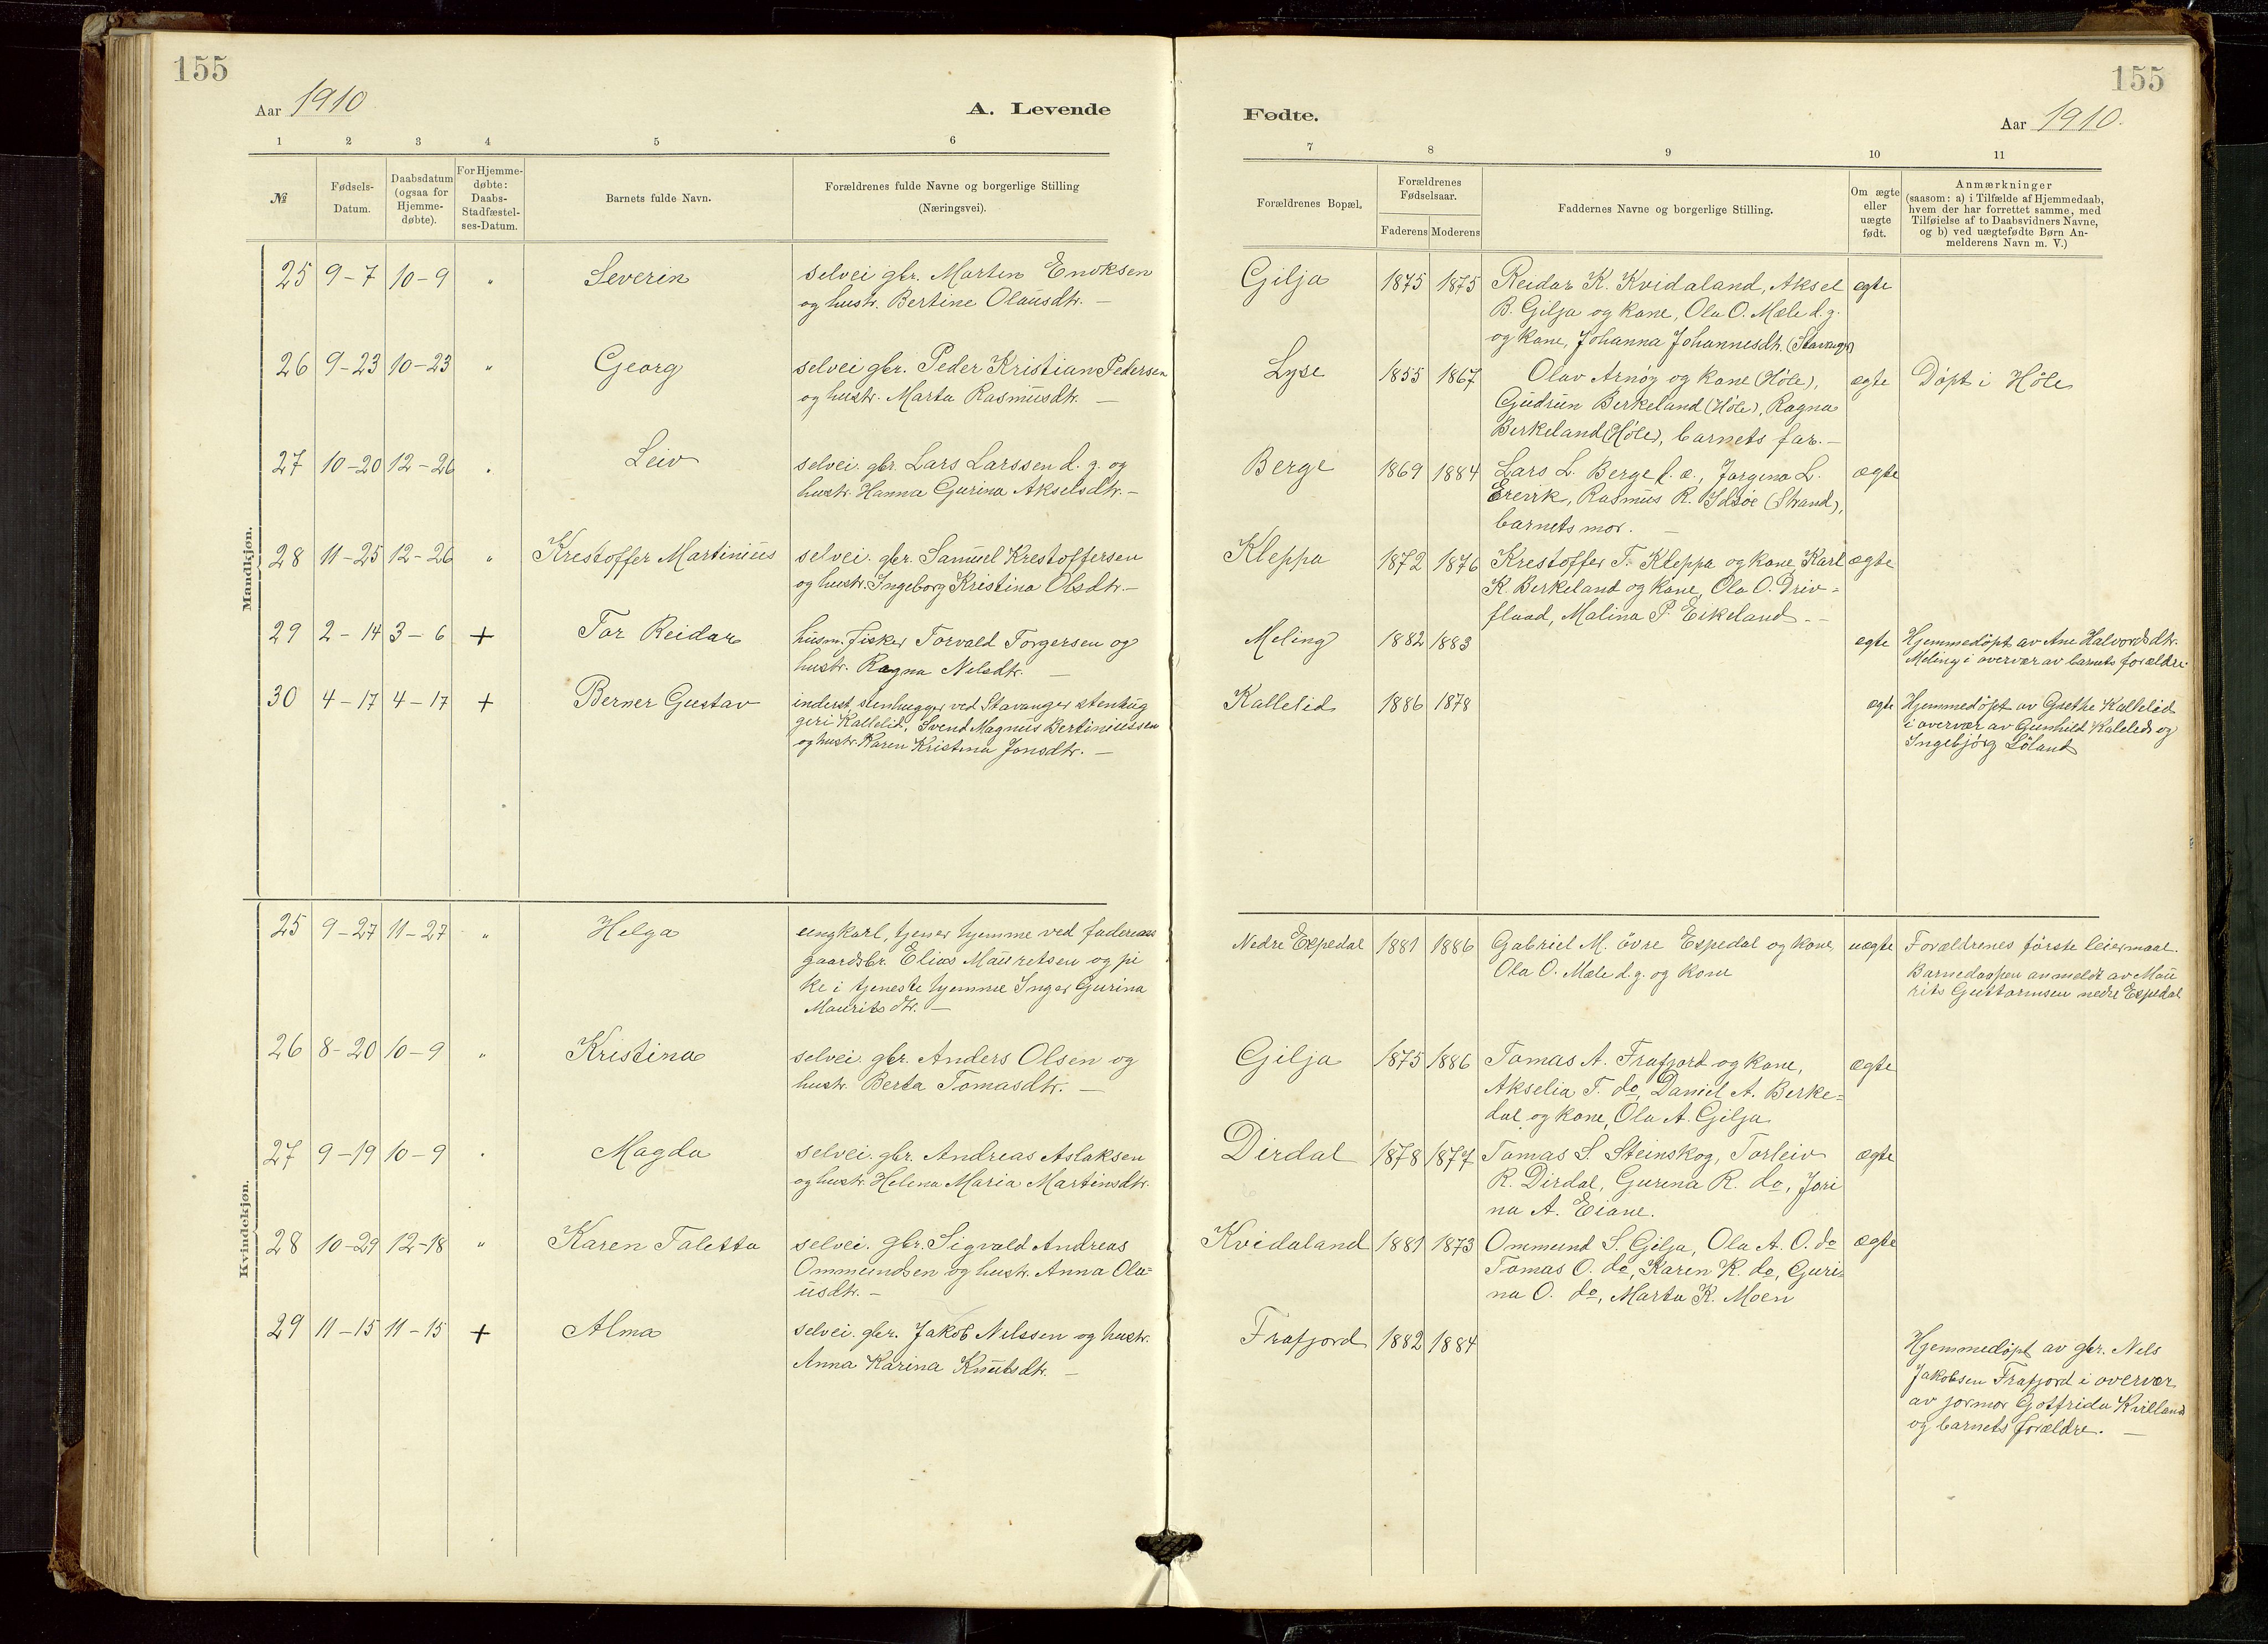 155
Aar 1910
A. Levende
1 2 3 4 5 6
№
Fødsels-Datum.
Daabsdatum (ogsaa for Hjemme-døbte).
For Hjemme-døbte: Daabs-Stadfæstel-ses-Datum.
Barnets fulde Navn.
Forældrenes fulde Navne og borgerlige Stilling
(Næringsvei).
155
Fødte.
Aar 1910.
7 8 9 10 11
Forældrenes Bopæl.
Forældrenes Fødselsaar.
Faderens Moderens
Faddernes Navne og borgerlige Stilling.
Om ægte eller uægte født.
Anmærkninger
(saasom: a) i Tilfælde af Hjemmedaab,
hvem der har forrettet samme, med
Tilføielse af to Daabsvidners Navne,
og b) ved uægtefødte Børn An-
melderens Navn m. V.)
Mandkjøn.
25 9-7 10-9 " Severin selvei gbr. Marten Enoksen
og hustr. Bertine Olausdtr. -
Gilja 1875 1875 Reidar K. Kvidaland, Aksel ægte
B. Gilja og kone, Ola O. Mæle d.g.
og kone, Johanna Johannesdtr. (Stavanger)
26 9-23 10-23 " Georg selvei gbr. Peder Kristian Pedersen
og hustr. Marta Rasmusdtr. -
Lyse 1855 1867 Olav Arnøy og kone (Høle), ægte Døpt i Høle
Gudrun Berkeland (Høle), Ragna
Berkeland (Høle), barnets far. -
27 10-20 12-26 " Leiv selvei. gbr. Lars Larssen d. y. og
hustr. Hanna Gurina Akselsdtr. -
Berge 1869 1884 Lars L. Berge d. æ., Jørgina L. ægte
Erevik, Rasmus R. Idsøe (Strand),
barnets mor. -
28 11-25 12-26 " Krestoffer Martinius selvei. gbr. Samuel Krestoffersen
og hustr. Ingeborg Kristina Olsdtr. -
Kleppa 1872 1876 Krestoffer T. Kleppa og kone, Karl ægte
K. Berkeland og kone, Ola O. Driv-
flaad, Malina P. Eikeland. -
29 2-14 3-6 + Tor Reidar husm. fisker Torvald Torgersen og
hustr. Ragna Nilsdtr. -
Meling 1882 1883 ægte Hjemmedøpt av Ane Halvordsdtr.
Meling i overvær av barnets forældre.
30 4-17 4-17 + Berner Gustav inderst stenhugger ved Stavanger stenhug
geri Kallelid, Svend Magnus Bertiniussen
og hustr. Karen Kristina Jonsdtr. -
Kallelid 1886 1878 ægte Hjemmedøpt av Grethe Kallelid
i overvær av Gunhild Kalelid og
Ingebjørg Løland
Kvindekjøn.
25 9-27 11-27 " Helga ungkarl, tjener hjemme ved faderens
gaardsbr. Elias Mauritsen og pi
ke i tjeneste hjemme Inger Gurina
Mauritsdtr. -
Nedre Espedal 1881 1886 Gabriel M. øvre Espedal og kone, uægte Forældrenes første leiermaal.
Ola O. Mæle d.g. og kone
Barnedaapen anmeldt av Mau
rits Guttormsen nedre Espedal
26 8-20 10-9 " Kristina selvei. gbr. Anders Olsen og
hustr. Berta Tomasdtr. -
Gilja 1875 1886 Tomas A. Frafjord og kone, ægte
Akselia T. do, Daniel A. Berke-
dal og kone, Ola A. Gilja
27 9-19 10-9 " Magda selvei. gbr. Andreas Aslaksen
og hustr. Helena Maria Martinsdtr.
Dirdal 1878 1877 Tomas S. Steinskog, Torleiv ægte
R. Dirdal, Gurina R. do, Jori
na A. Eiane.
28 10-29 12-18 " Karen Taletta selvei. gbr. Sigvald Andreas
Ommundsen og hustr. Anna Ola-
usdtr. -
Kvidaland 1881 1873 Ommund S. Gilja, Ola A. O. do ægte
Tomas O. do, Karen K. do, Guri-
na O. do, Marta K. Moen
29 11-15 11-15 + Alma selvei. gbr. Jakob Nilssen og hustr.
Anna Karina Knutsdtr. -
Frafjord 1882 1884 Hjemmedøpt av gbr. Nils
Jakobsen Frafjord i overvær
av jormor Gotfrida Kvilland
og barnets forældre. -